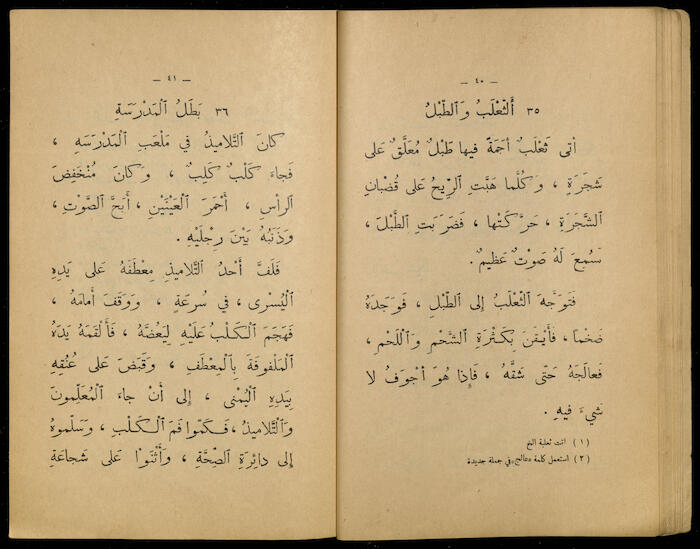 – ٤٠ –
٣٥ اَلثَّعْلَبُ وَالطَّبْلُ
أتى ثَعْلَبٌ أَجَمَةً فيها طَبْلٌ مُعَلَّقٌ عَلى
شَجَرَةٍ ، وَكُلَّما هَبَّتِ الرِّيحُ عَلى قُضْبانِ
الشَّجَرَةِ ، حَرَّكَتْها ، فَضَرَبَتِ الطَّبْلَ ،
سُمِعَ لَهُ صَوْتٌ عَظيمٌ .
فَتَوَجَّهَ الثَّعْلَبُ إلى الطَّبْلِ ، فَوَجَدَهُ
ضَخْماً ، فَأَيْقَنَ بِكَثْرَةِ الشَّحْمِ وَاللَّحْمِ ،
فَعالَجَهُ حَتّى شَقَّهُ ، فَإِذا هُوَ أَجْوَفُ لا
شَيْءَ فيهِ .
(١) اتت ثعلبة الخ
(٢) استعمل كلمة «عالج» في جملة جديدة
– ٤١ –
٣٦ بَطَلُ الْمَدْرَسَةِ
كانَ التَّلاميذُ في مَلْعَبِ الْمَدْرَسَةِ ،
فَجاءَ كَلْبٌ كَلِبٌ ، وَكانَ مُنْخَفِضَ
الرأسِ ، أَحْمَرَ الْعَيْنَيْنِ ، أَبَحَّ الصَّوْتِ ،
وَذَنَبُهُ بَيْنَ رِجْلَيْهِ .
فَلَفَّ أَحَدُ التَّلاميذِ مِعْطَفَهُ عَلى يَدِهِ
الْيُسْرى ، في سُرْعَةٍ ، وَوَقَفَ أَمامَهُ ،
فَهَجَمَ الْكَلْبُ عَلَيْهِ لِيَعَضَّهُ ، فَأَلْقَمَهُ يَدَهُ
الْمَلْفوفَةَ بِالْمِعْطَفِ ، وَقَبَضَ عَلى عُنُقِهِ
بِيَدِهِ الْيُمْنى ، إلى أَنْ جاءَ الْمُعَلِّمونَ
وَالتَّلاميذُ ، فَكَمّوا فَمَ الْكَلْبِ ، وَسَلَّموهُ
إلى دائِرَةِ الصِّحَّةِ ، وَأَثْنَوْا عَلى شَجاعَةِ